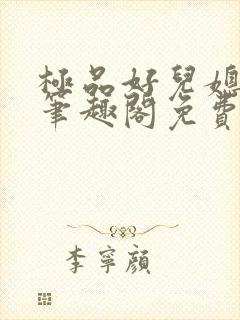 極品好兒媳
筆趣閣免費
李寧顏